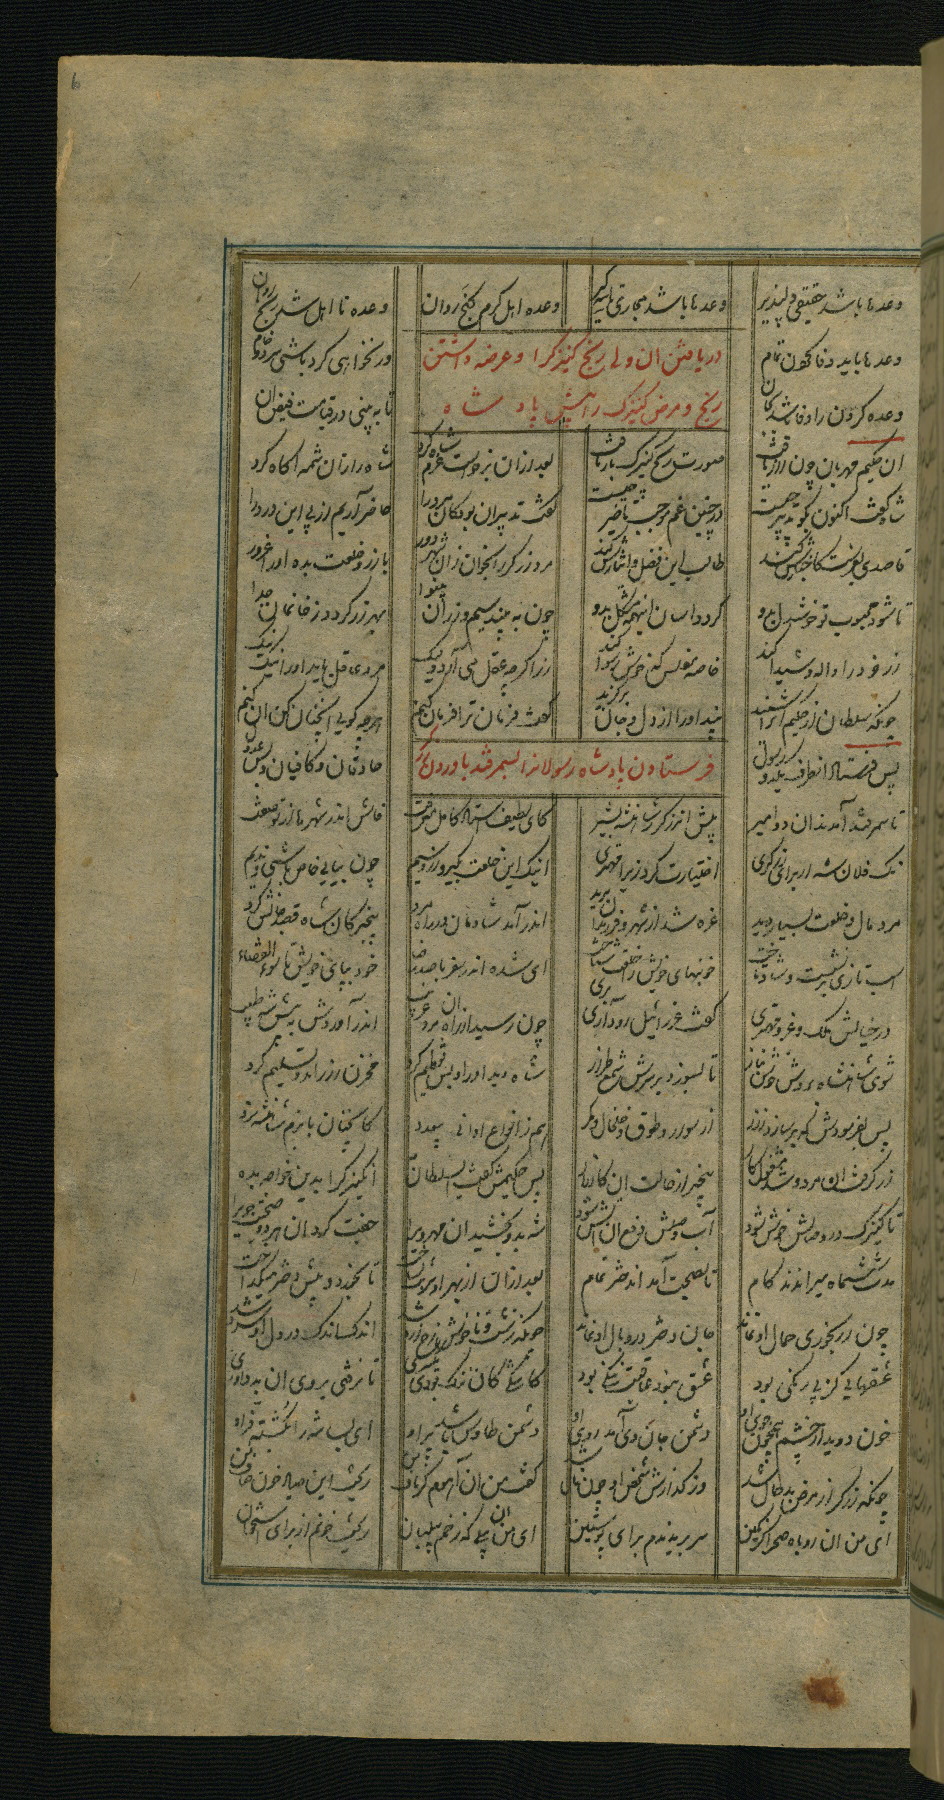 وعدها باشد حقیقی دلپذیر وعدها باشد مجازی تاسه گیر وعده اهل کرم گنج روان وعده نا اهل شد رنج روان
وعدها باید وفا کردن تمام دریافتن ان ولی رنج کنیزک را و عرضه داشتن ور نخواهی کرد باشی سرد و خام
وعده کردن را وفا باشد بجان رنج و مرض کنیزک را پیش پادشاه تا به بینی در قیامت فیض ان
ان حکیم مهربان چون راز یافت صورت رنج کنیزک باز یافت بعد ازان برخواست عزم شاه کرد شاه را زان شمه اکاه کرد
شاه گفت اکنون بگو تدبیر چیست در چنین غم موجب تاخیر چیست گفت تدبیر ان بود کان مرد را حاضر آریم از پی این درد را
قاصدی بفرست کاخبارش کند طالب این فضل و ایثارش کند مرد زرگر را بخوان زان شهر دور با زر و خلعت بده اورا غرور
تا شود محبوب تو خوشدل بدو گردد اسان اینهمه مشکل بدو چون به بیند سیم و زر ان بینوا بهر زر گردد ز خانمان جدا
زر خرد را واله و شیدا کند خاصه مفلس که خوش رسوا کند زر اگرچه عقل می آرد ولیک مردی عاقل باید اورا نیک نیک
چونکه سلطان از حکیم انرا شنید پند اورا از دل و جان برگزید گفت فرمان ترا فرمان کنم هرچه گویی انچنان کن ان کنم
پس فرستاد انطرف یکدو رسول فرستادن پادشاه رسولانرا بسمرقند باوردن زرگر حاذقان و کافیان بس عدول
تا سمرقند آمدند ان دو امیر پیش ان زرگر ز شاهنشه بشیر کای لطیف استاد کامل معرفت فاش اندر شهرها از تو صفت
نک فلان شه از برای زرگری اختیارت کرد زیرا مهتری اینک این خلعت بگیر و زر و سیم چون بیایی خاص باشی و ندیم
مرد مال و خلعت بسیار دید غره شد از شهر و فرزندان برید اندر آمد شادمان در راه مرد بیخبر کان شاه قصد جانش کرد
اسب تازی برنشست و شاد تاخت خونبهای خویش را خلعت شناخت ای شده اندر سفر با صد رضا خود بپای خویش تا سوء القضاء
در خیالش ملک و عز و مهتری گفت عزرائیل رو آری بری چون رسید از راه ان مرد غریب اندر آوردش به پیش شه طبیب
سوی شاهنشاه بردش خوش بناز تا بسوزد بر سر شمع طراز شاه دید اورا و بس تعظیم کرد مخزن زر را بدو تسلیم کرد
پس بفرمودش که برسازد ز زر از سوار و طوق و خلخال و کمر هم ز انواع اوانی بیعدد کانچنان با بزم شاهنشه سزد
زر گرفت ان مرد و شد مشغول کار بیخبر از حالت ان کارزار پس حکیمش گفت ای سلطان مه ان کنیزک را بدین خواجه بده
تا کنیزک در وصالش خوش شود آب وصلش دفع ان آتش شود شه بدو بخشید ان مه روی را جفت کرد ان هر دو صحبت جوی را
مدت ششماه میراندند کام تا بصحت آمد ان دختر تمام بعد ازان از بهر او شربت بساخت تا بخورد و پیش دختر میگداخت
چون ز رنجوری جمال او نماند جان دختر در وبال او نماند چونکه زشت و ناخوش و رخ زرد شد اندک اندک در دل او سرد شد
عشقهایی کز پی رنگی بود عشق نبود عاقبت ننگی بود کاشکی کان ننگ بودی یکسری تا نرفتی بروی ان بد داوری
خون دوید از چشم همچون جوی او دشمن جان وی آمد روی او دشمن طاوس آمد پر او ای بسا شه را بکشته فر او
چونکه زرگر از مرض بدحال شد وز گدازش شخص او چون نال شد گفت من ان آهوم کز ناف من ریخت این صیاد خون صاف من
ای من ان روباه صحرا کز کمین سر بریدندم برای پوستین ای من ان پیلی که زخم پیلبان ریخت خونم از برای استخوان